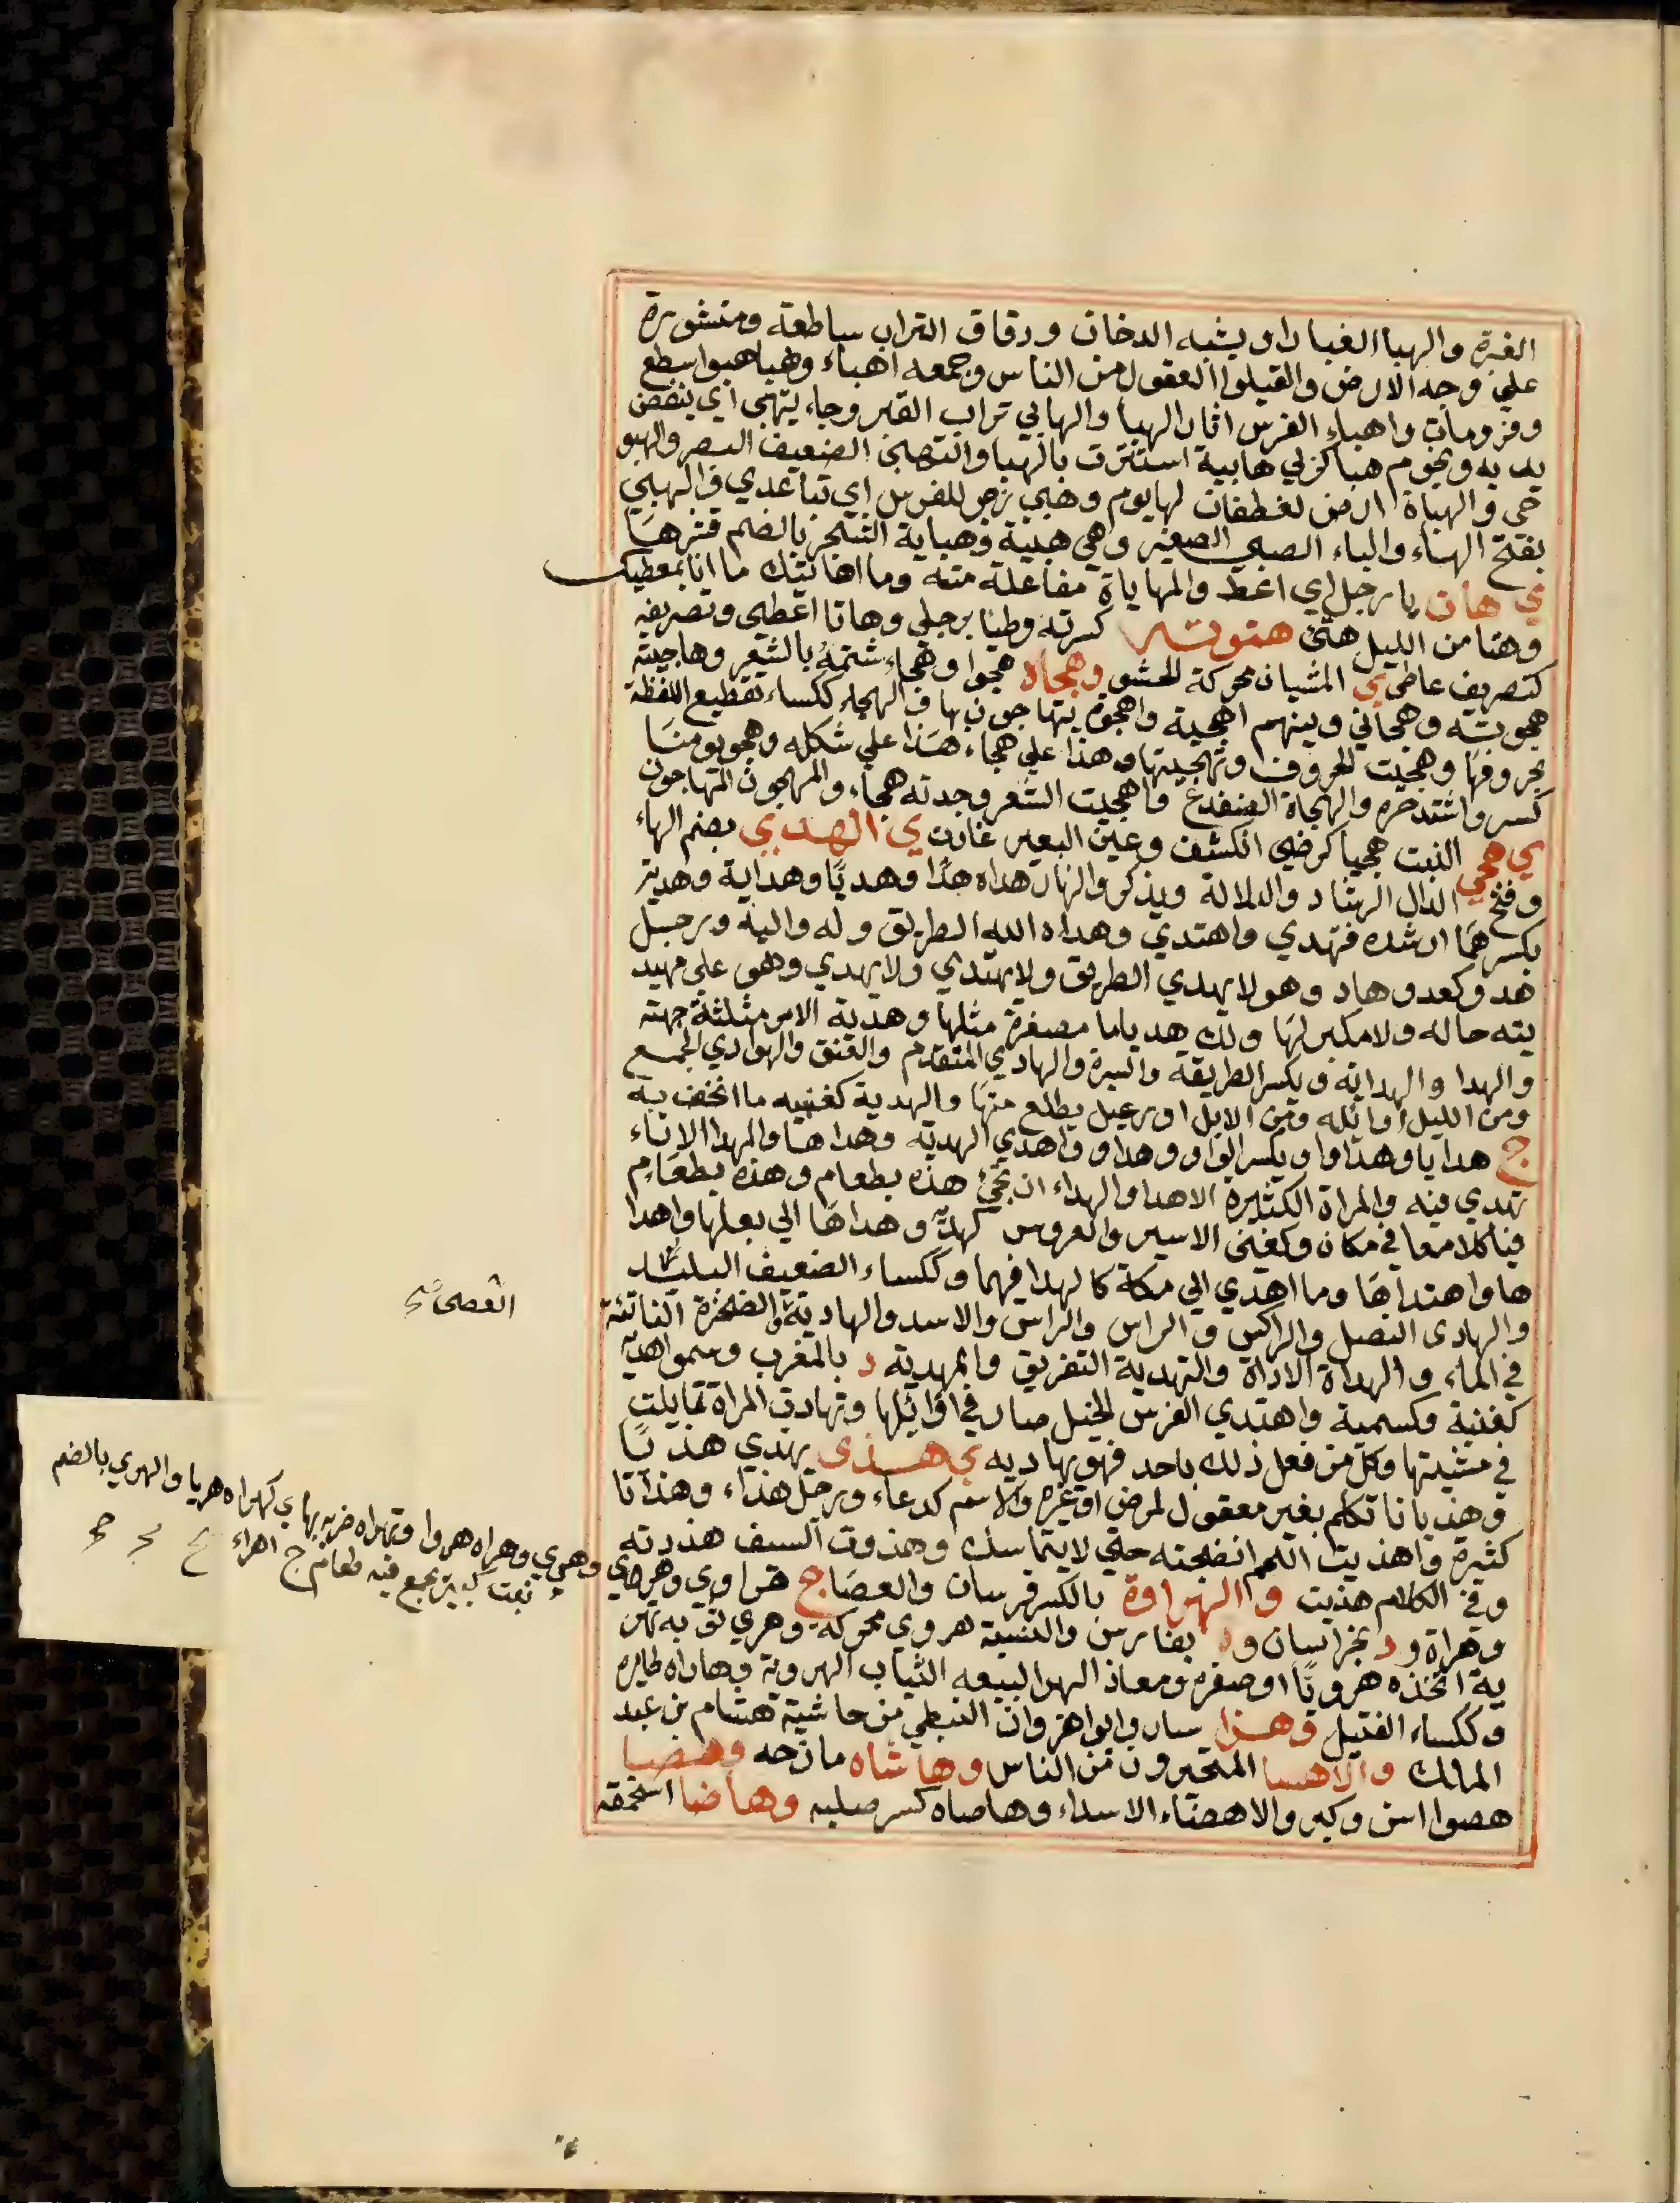 الغبرة والهبا الغبار او يشبه الدخان ودقاق التراب ساطعة ومنثورة
علي وجه الارض والقيلوا العقول من الناس وجمعه اهباء وهبا هبوا سطع
وفر ومات واهباء الفرس اثار الهبا والهابي تراب القبر وجاء يتهبي اي ينفض
يديه ونجوم هبا كزلي هابية استترت بالهبا والتصبي الضعيف البصر والهبو
حي والهباة ارض لغطفان لها يوم وهبي زجر للفرس اي تباعدي والهبي
بفتح الهاء والباء الصبي الصغير وهي هبية وهباية الشجر بالضم قشرها
ي هات يا رجل اي اعط والمهاياة مفاعلة منه وما اهاتيك ما انا بمعطيك
وهتا من الليل هتئ هتوته كسرته وطيا برجلي وهاتا اعطي وتصريفه
كتصريف عاطي ي المشيان محركة للحشو وهجاه هجوا وهجاء شتمه بالشعر وهاجيته
هجوته وهجاني وبينهم اهجية واهجوة يتهاجون بها والهجاء ككساء تقطيع اللفظة
بحروفها وهجيت الحروف وتهجيتها وهذا علي هجاء هذا علي شكله وهجو يومنا
كسرو اشتد حره والهجاة الضفدع واهجيت الشعر وجدته هجاء والمهجون المتهاجون
ي هجي البيت هجيا كرضي انكشف وعين البعير غارت ي الهدي بضم الهاء
وفتح الدال الرشاد والدلالة ويذكر والنهار هداه هدا وهديا وهداية وهدية
بكسرهما ارشده فهدي واهتدي وهداه الله الطريق وله واليه ورجل
هدو كعدو هاد وهو لا يهدي الطريق ولا يهتدي ولا يهدي وهو علي مهيد
يته حاله ولا مكبر لها ولك هدياها مصغرة مثلها وهدية الامر مثلثة جهته
والهدا والهداية ويكسر الطريقة والسيرة والهادي المتقدم والعنق والهوادي الجمع
ومن الليل اوائله ومن الابل اول رعيل يطلع منها والهدية كغنيه ما اتحف به
ج هدايا وهداوا ويكسر الواو وهداو واهدي الهدية وهداها والمهدا الاناء
تهدي فيه والمراة الكثيرة الاهدا والهداء ان تجئ هذه بطعام وهذه بطعام
فياكلا معا في مكان وكغني الاسير والعروس كهدية وهداها الي بعلها واهدا
ها واهتداها وما اهدي الي مكة كالهدا فيهما وككساء الضعيف البليد
والهادي النصل والراكس والراس والراس والاسد والهادية الصخرة الناتئة
في الماء والهداة الاداة والتهدية التفريق والمهدية د بالمغرب وسموا هدية
كغنية وكسمية واهتدي الفرس الخيل صار في اوائلها وتهادت المراة تمايلت
في مشيتها وكل من فعل ذلك باحد فهو يهاديه ي هذي يهذي هذيا
وهذيانا تكلم بغير معقول لمرض او غيره والاسم كدعاء ورجل هذاء وهذاتا
كثيرة واهذيت اللحم انضجته حتي لا يتماسك وهذوت السيف هذدته
وفي الكلام هذيت والهراوة بالكسر فرسان والعصا ج هراوي وهراي وهري وهراه هروا وتهراه ضربه بها ي كهراه هريا والهري بالضم
بيت كبير يجمع فيه طعام ج اهراء
وهراة ود بخراسان ود بفارس والنسبة هروي محركة وهري ثوبه تهر
ية اتخذه هرويا او صفره ومعاذ الهرا لبيعه الثياب الهروية وهاراه طايره
وككساء الفتيل وهزا سار وابو اهزوان النبطي من حاشية هشام بن عبد
المالك والاهسا المتحيرون من الناس وهاشاه مازحه وهصا
هصوا اسن وكبر والاهصاء الاسداء وهاصاه كسر صلبه وهاضا استحمقه
العصى صح